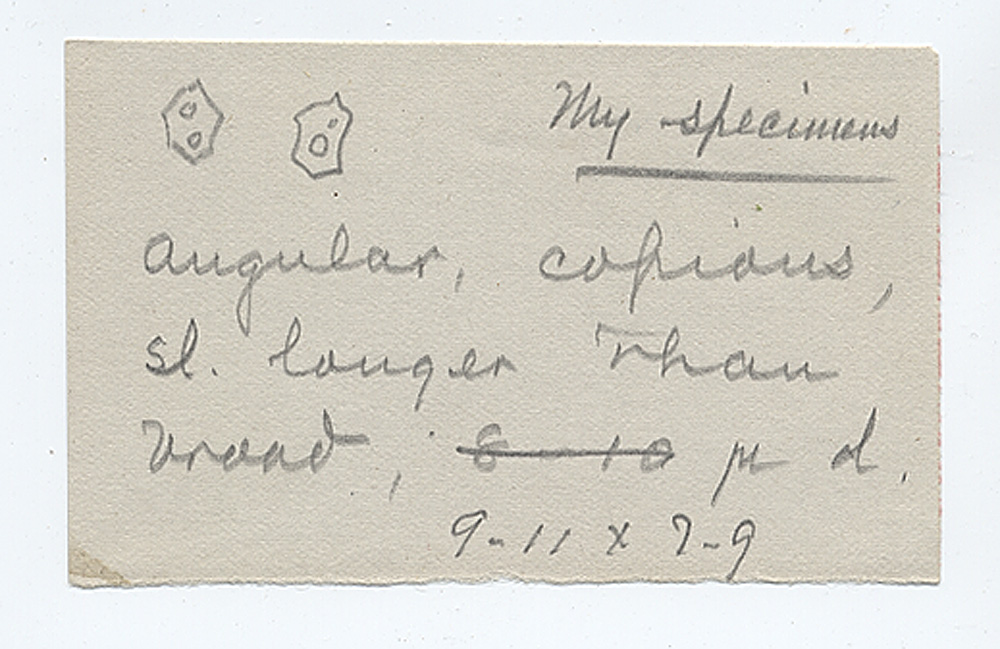 My specimens
angular, copious,
sl. longer than
broad, 8-10 µ d.
9-11 x 7-9